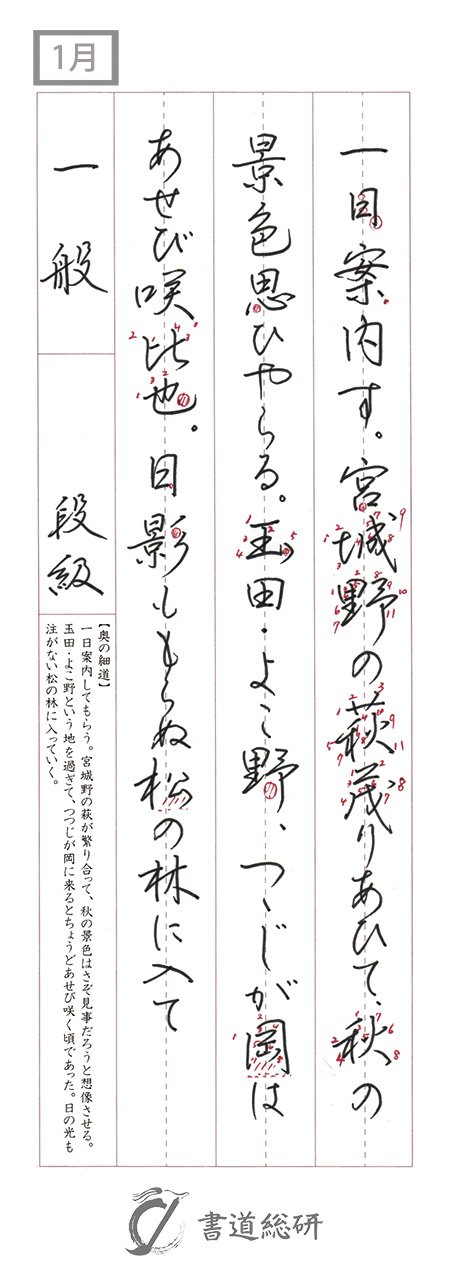 1月
一日案内す。宮城野の萩茂りあひて、秋の
景色思ひやらるる。玉田・よこ野、つゝじが岡は
あせび咲比也。日影ももらぬ松の林に入て
一般
段級
【奥の細道】
一日案内してもらう。宮城野の萩が繁り合って、秋の景色はさぞ見事だろうと想像させる。
玉田・よこ野という地を過ぎて、つつじが岡に来るとちょうどあせび咲く頃であった。日の光も
注がない松の林に入っていく。
書道総研